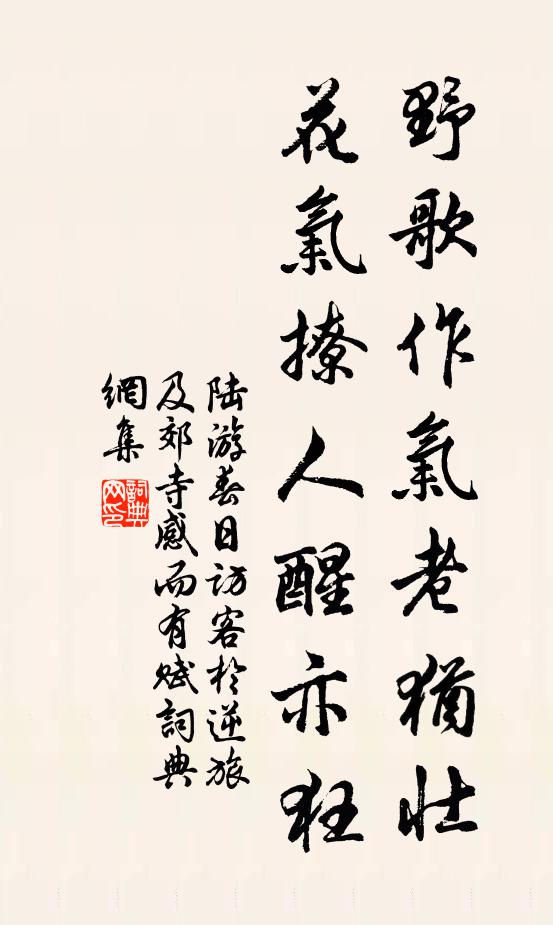 野歌作氣老猶壯
花氣撩人醒亦狂
陸游春日訪客於逆旅
及郊寺感而有賦詞典
網集
詞典
网印